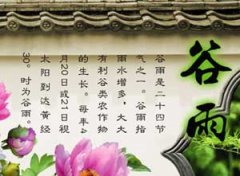 谷雨
谷雨是二十四节
气之一。谷雨指
雨水增多，大大
有利谷类农作物
的生长。每年4
月20日或21日视
太阳到达黄经
30°。时为谷雨。